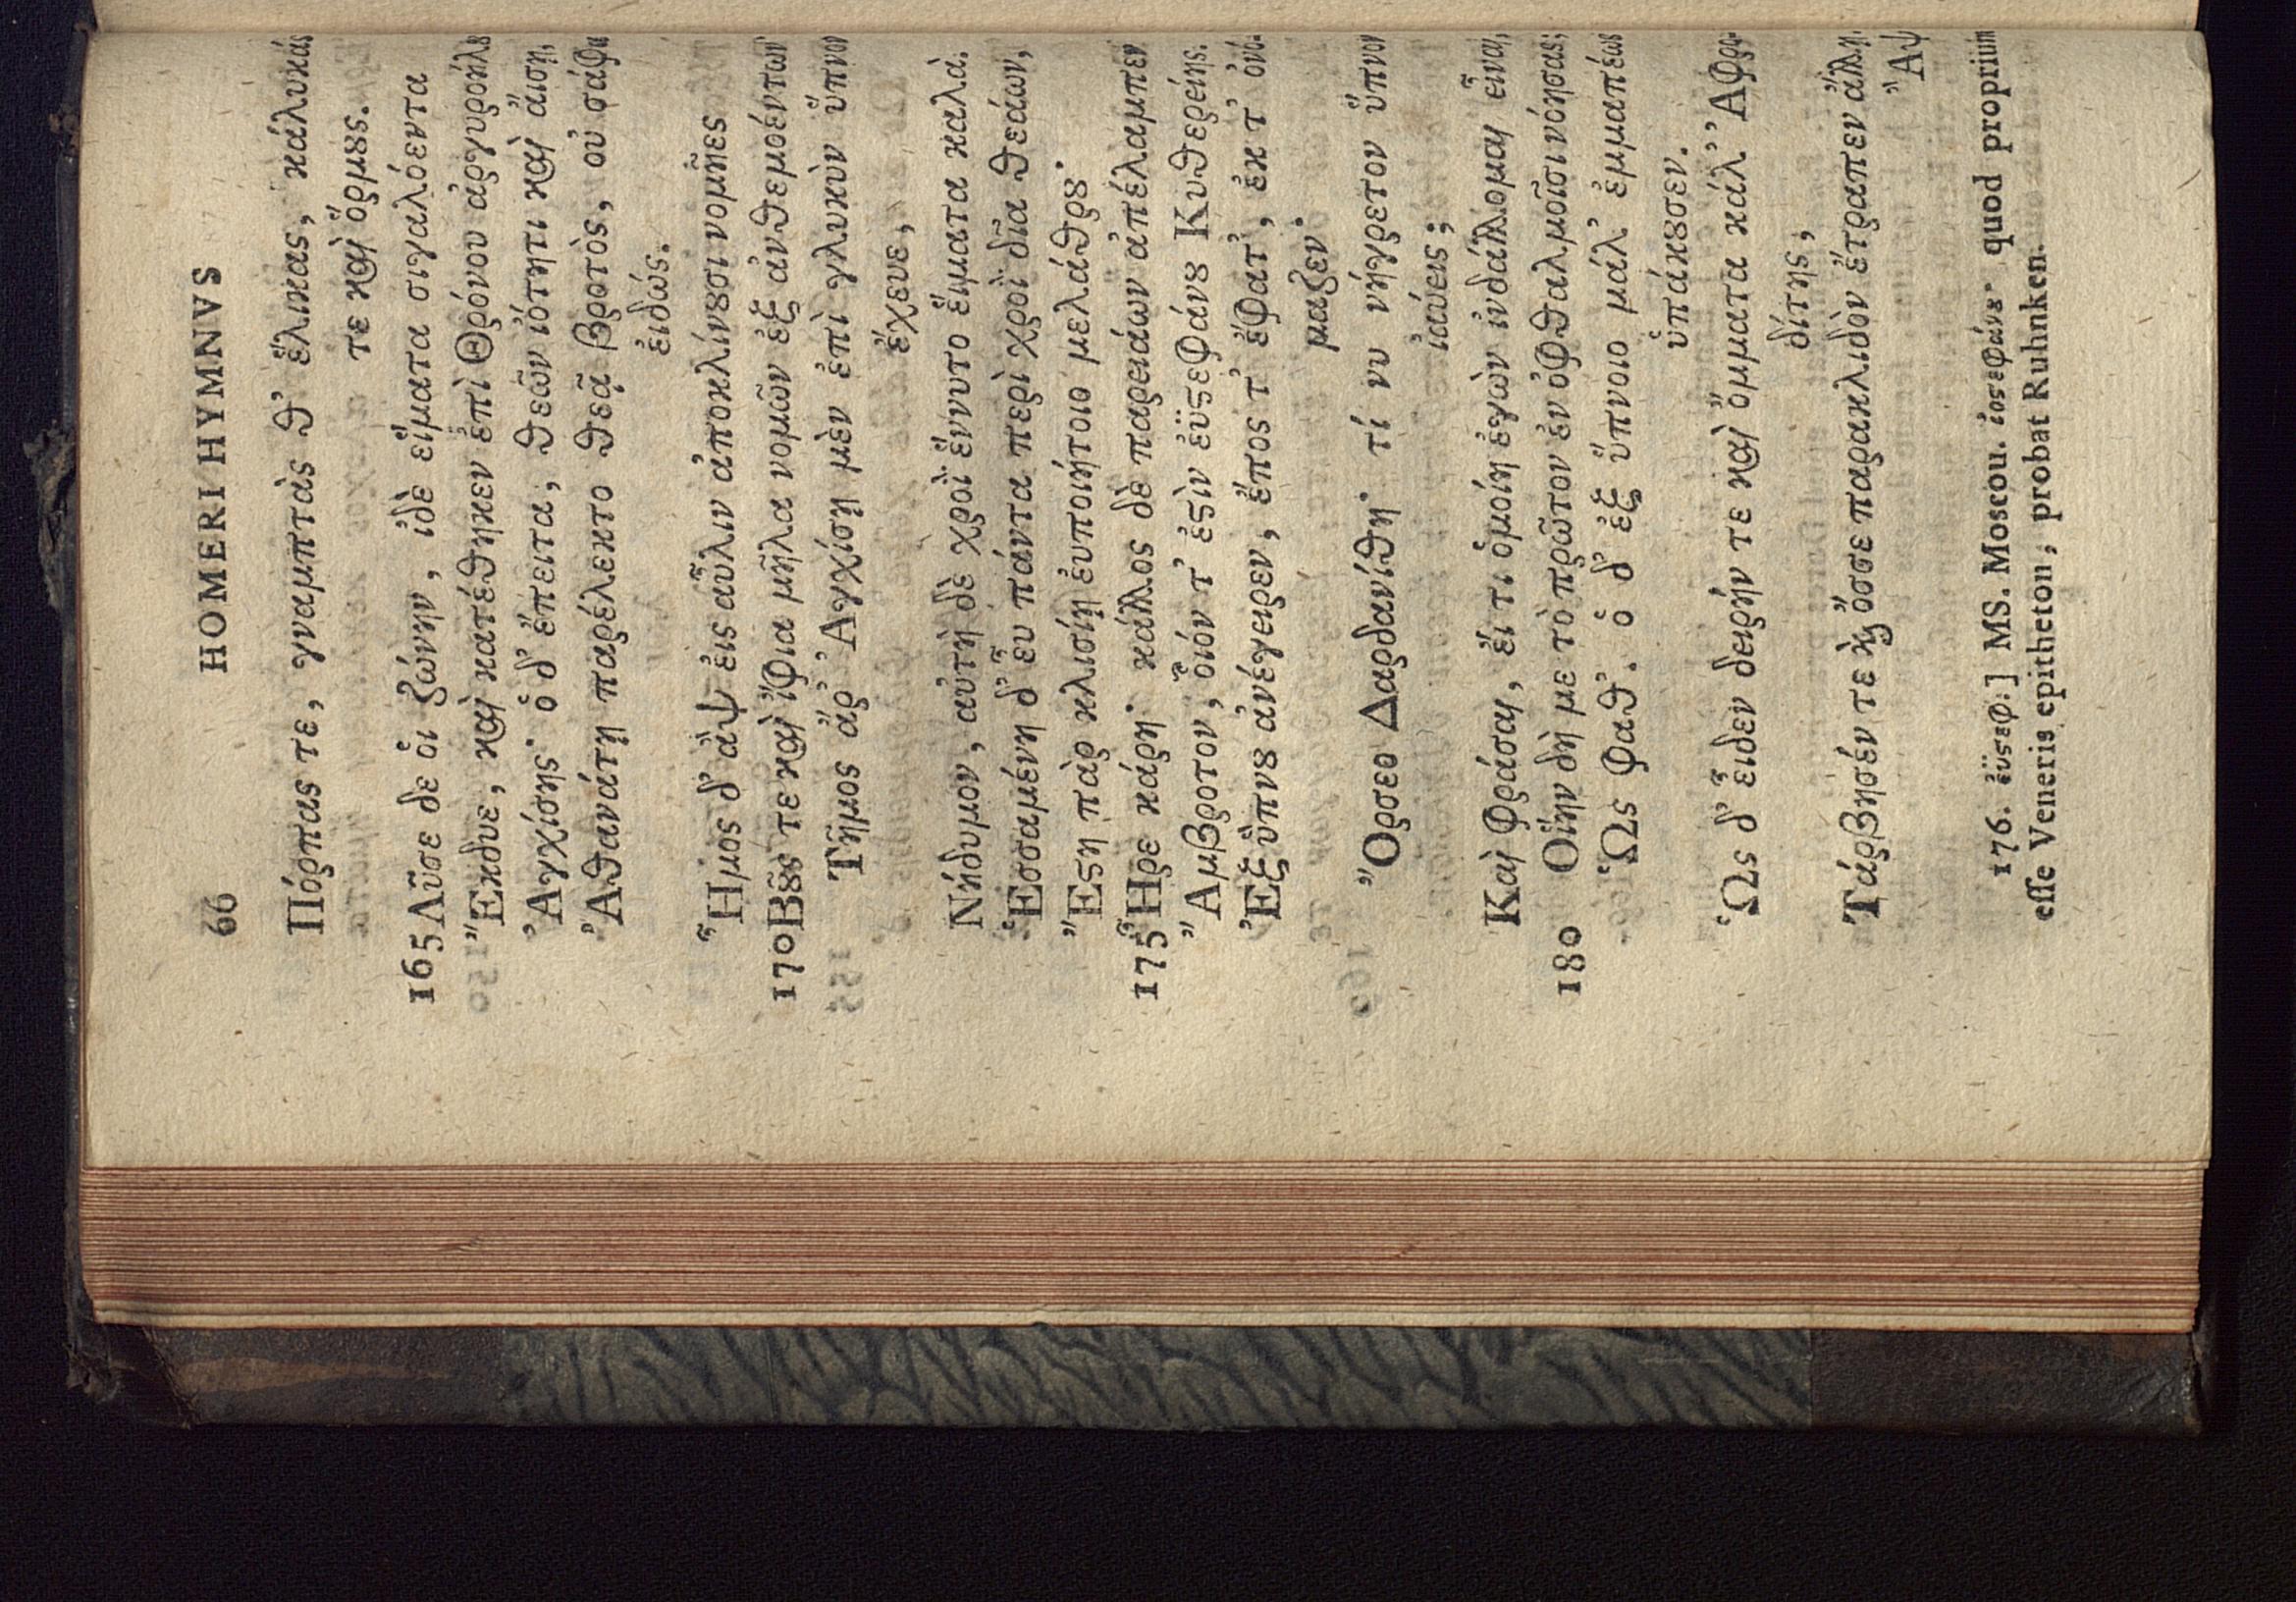 66 HOMERI HYMNVS
Πόρπας τε, γναμπτὰς θ' ἕλικας, κάλυκάς
τε καὶ ὅρμȣς.
165 Λῦσε δε οἱ ζώνην, ἰδὲ εἵματα σιγαλόεντα
Ἔκδυε, καὶ κατέθηκεν ἐπὶ Θρόνου ἀργυροήλȣ
Ἀγχίσης· ὁ δ' ἔπειτα, θεῶν ἰότητι καὶ ἄιση,
Ἀθανάτῃ παρέλεκτο θεᾷ βροτὸς, οὐ σάφα
ἐιδώς.
Ἦμος δ' ἂψ ἐις αὖλιν ἀποκλίνȣσι νομῆες
170 Βȣ͂ς τε καὶ ἴφια μῆλα νομῶν ἐξ ἀνθεμοέντων
Τῆμος ἄρ' Ἀγχίσῃ μὲν ἐπὶ γλυκὺν ὕπνον
ἔχευε,
Νήδυμον, αὐτὴ δὲ χροῒ ἕννυτο ἕιματα καλὰ.
Ἑσσαμένη δ' εὖ πάντα περὶ χροῒ δῖα θεάων,
Ἔϛη πὰρ κλισίῃ ἐυποιήτοιο μελάθρȣ·
175 Ἦρε κάρη· κάλλος δὲ παρειάων ἀπέλαμπεν
Ἄμβροτον, οἷόν τ' ἐϛὶν ἐϋϛεφάνȣ Κυθερείης.
Ἐξ ὕπνȣ ἀνέγειρεν, ἔπος τ' ἔφατ', ἐκ τ' ὀνό-
μαζεν·
Ὄρσεο Δαρδανίθη· τί νυ νήγρετον ὕπνον
ἰαύεις;
Καὶ φράσαι, ἔι τι ὁμοίη ἐγὼν ἰνδάλλομαι εἶναι,
180 Οἵην δή με τὸ πρῶτον ἐν ὀφθαλμοῖσι νόησας;
Ὣς φαθ'. ὁ δ' ἐξ ὕπνοιο μάλ' ἐμμαπέως
ὑπάκȣσεν.
Ὡς δ' εἶδεν δειρήν τε καὶ ὄμματα κάλ' Ἀφρο-
δίτης,
Τάρβησέν τε ϗ ὄσσε παρακλιδὸν ἔτραπεν ἄλλῃ.
Ἂψ
176. ἐϋϛεφ.] MS. Moscou. ἰοϛεφάνȣ· quod proprium
esse Veneris epitheton; probat Ruhnken.